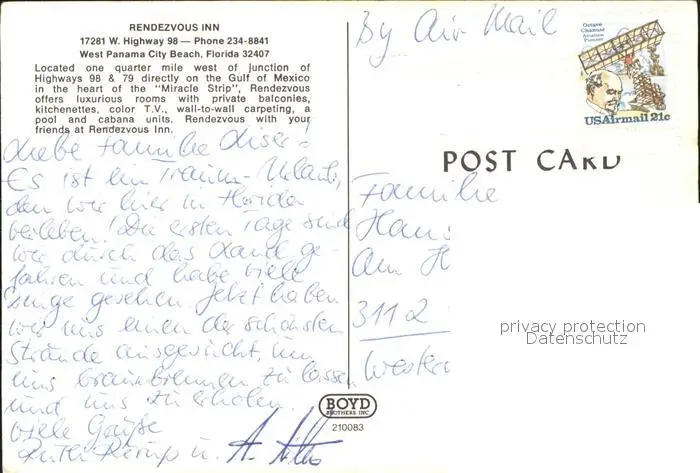 RENDEZVOUS INN
17281 W. Highway 98 — Phone 234-8841
West Panama City Beach, Florida 32407
Located one quarter mile west of junction of
Highways 98 & 79 directly on the Gulf of Mexico
in the heart of the "Miracle Strip", Rendezvous
offers luxurious rooms with private balconies,
kitchenettes, color T.V., wall-to-wall carpeting, a
pool and cabana units. Rendezvous with your
friends at Rendezvous Inn.
Liebe Familie
Es ist ein Traum-Urlaub,
den wir hier in Florida
verleben! Die ersten Tage sind
wir durch das Land ge-
fahren und habe viele
gesehen. Jetzt haben
wir uns einen der schönsten
Strände ausgesucht, um
uns braunbrennen zu lassen
und uns zu erholen.
Viele Grüße
u. A.
By Air Mail
Octave
Chanute
Aviation
Pioneer
USAirmail 21c
POST CARD
Familie
Hans
Am H
3112
Western
privacy protection
Datenschutz
BOYD
BROTHERS INC
210083